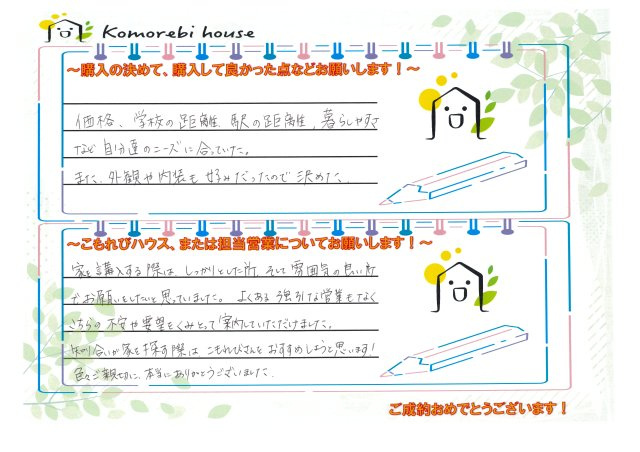 Komorebi house
～購入の決めて、購入して良かった点などお願いします！～
価格、学校の距離、駅の距離、暮らしやすさ
など自分達のニーズに合っていた。
また、外観や内装も好みだったので決めた。
～こもれびハウス、または担当営業についてお願いします！～
家を購入する際は、しっかりとした所、そして雰囲気の良い所
でお願いをしたいと思っていました。よくある強引な営業もなく
こちらの不安や要望をくみとって案内していただけました。
知り合いが家を探す際はこもれびさんをおすすめしようと思います！
色々ご親切に、本当にありがとうございました。
ご成約おめでとうございます！